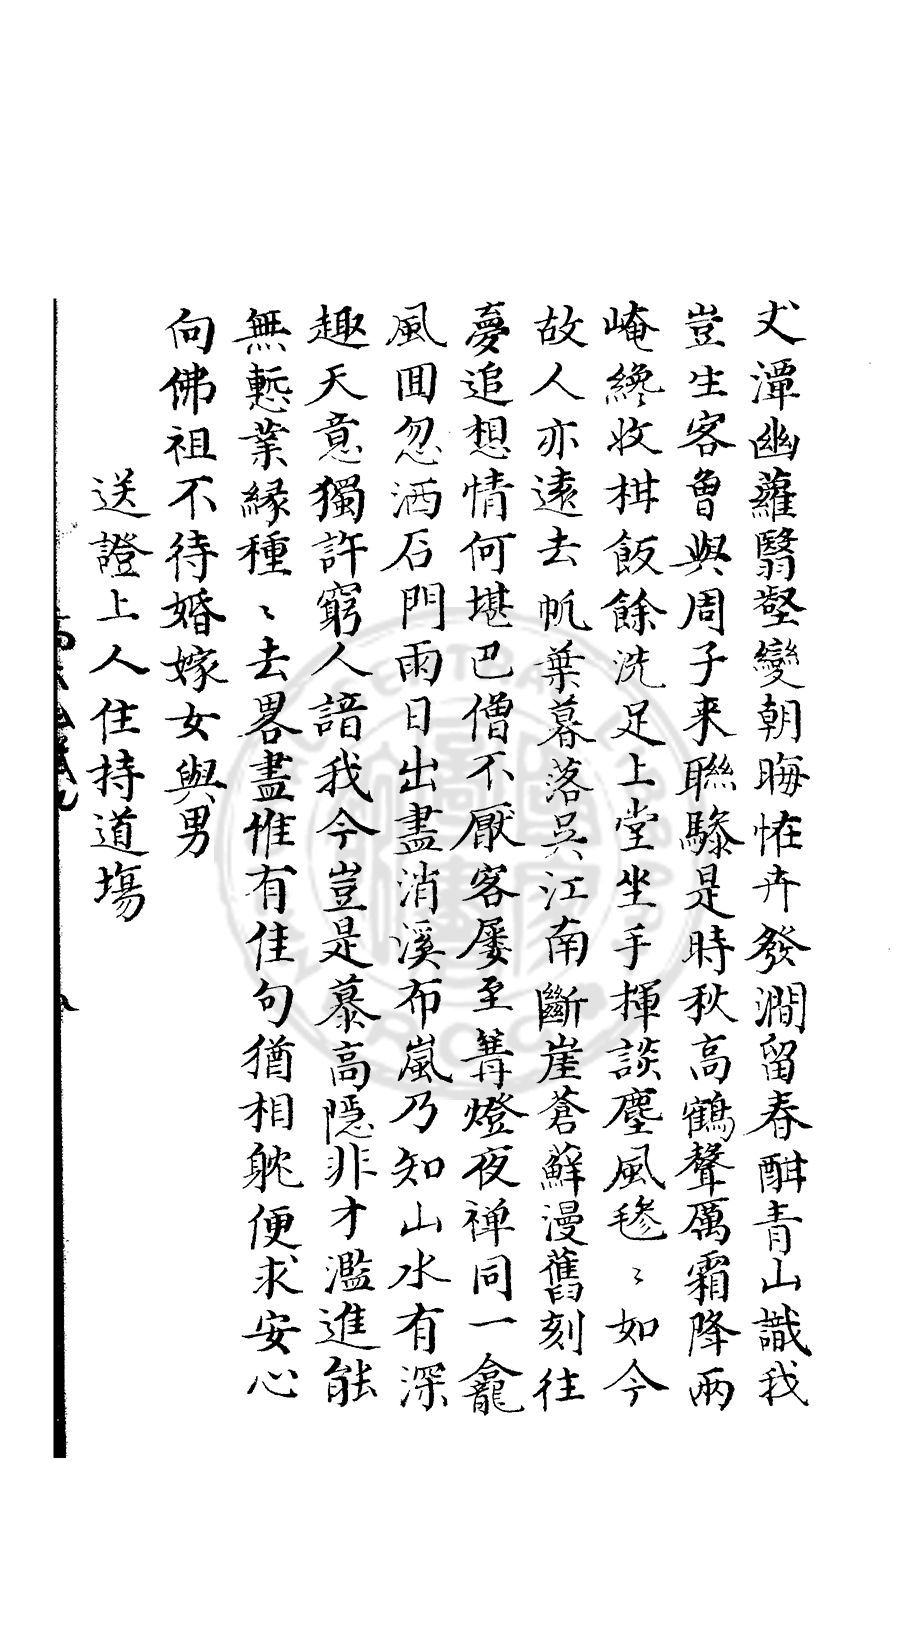 丈潭幽蘿翳壑變朝晦怪卉發澗留春酣青山識我
豈生客曾與周子来聯驂是時秋高鶴聲厲霜降兩
崦纔收柑飯餘洗足上堂坐手揮談麈風毿〻如今
故人亦遠去帆葉暮落吳江南斷崖蒼蘚漫舊刻往
夢追想情何堪巴僧不厭客屢至篝燈夜禅同一龕
風囬忽洒石門雨日出盡消溪布嵐乃知山水有深
趣天意獨許窮人諳我今豈是慕高隱非才濫進能
無慙業緣種〻去畧盡惟有佳句猶相躭便求安心
向佛祖不待婚嫁女與男
送證上人住持道場